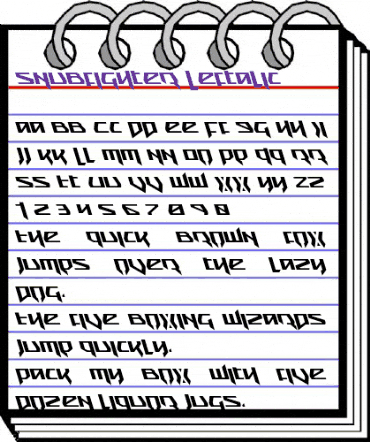 Snubfighter Leftalic
Aa Bb Cc Dd Ee Ff Gg Hh Ii
Jj Kk Ll Mm Nn Oo Pp Qq Rr
Ss Tt Uu Vv Ww Xx Yy Zz
1 2 3 4 5 6 7 8 9 0
The quick brown fox
jumps over the lazy
dog.
The five boxing wizards
jump quickly.
Pack my box with five
dozen liquor jugs.